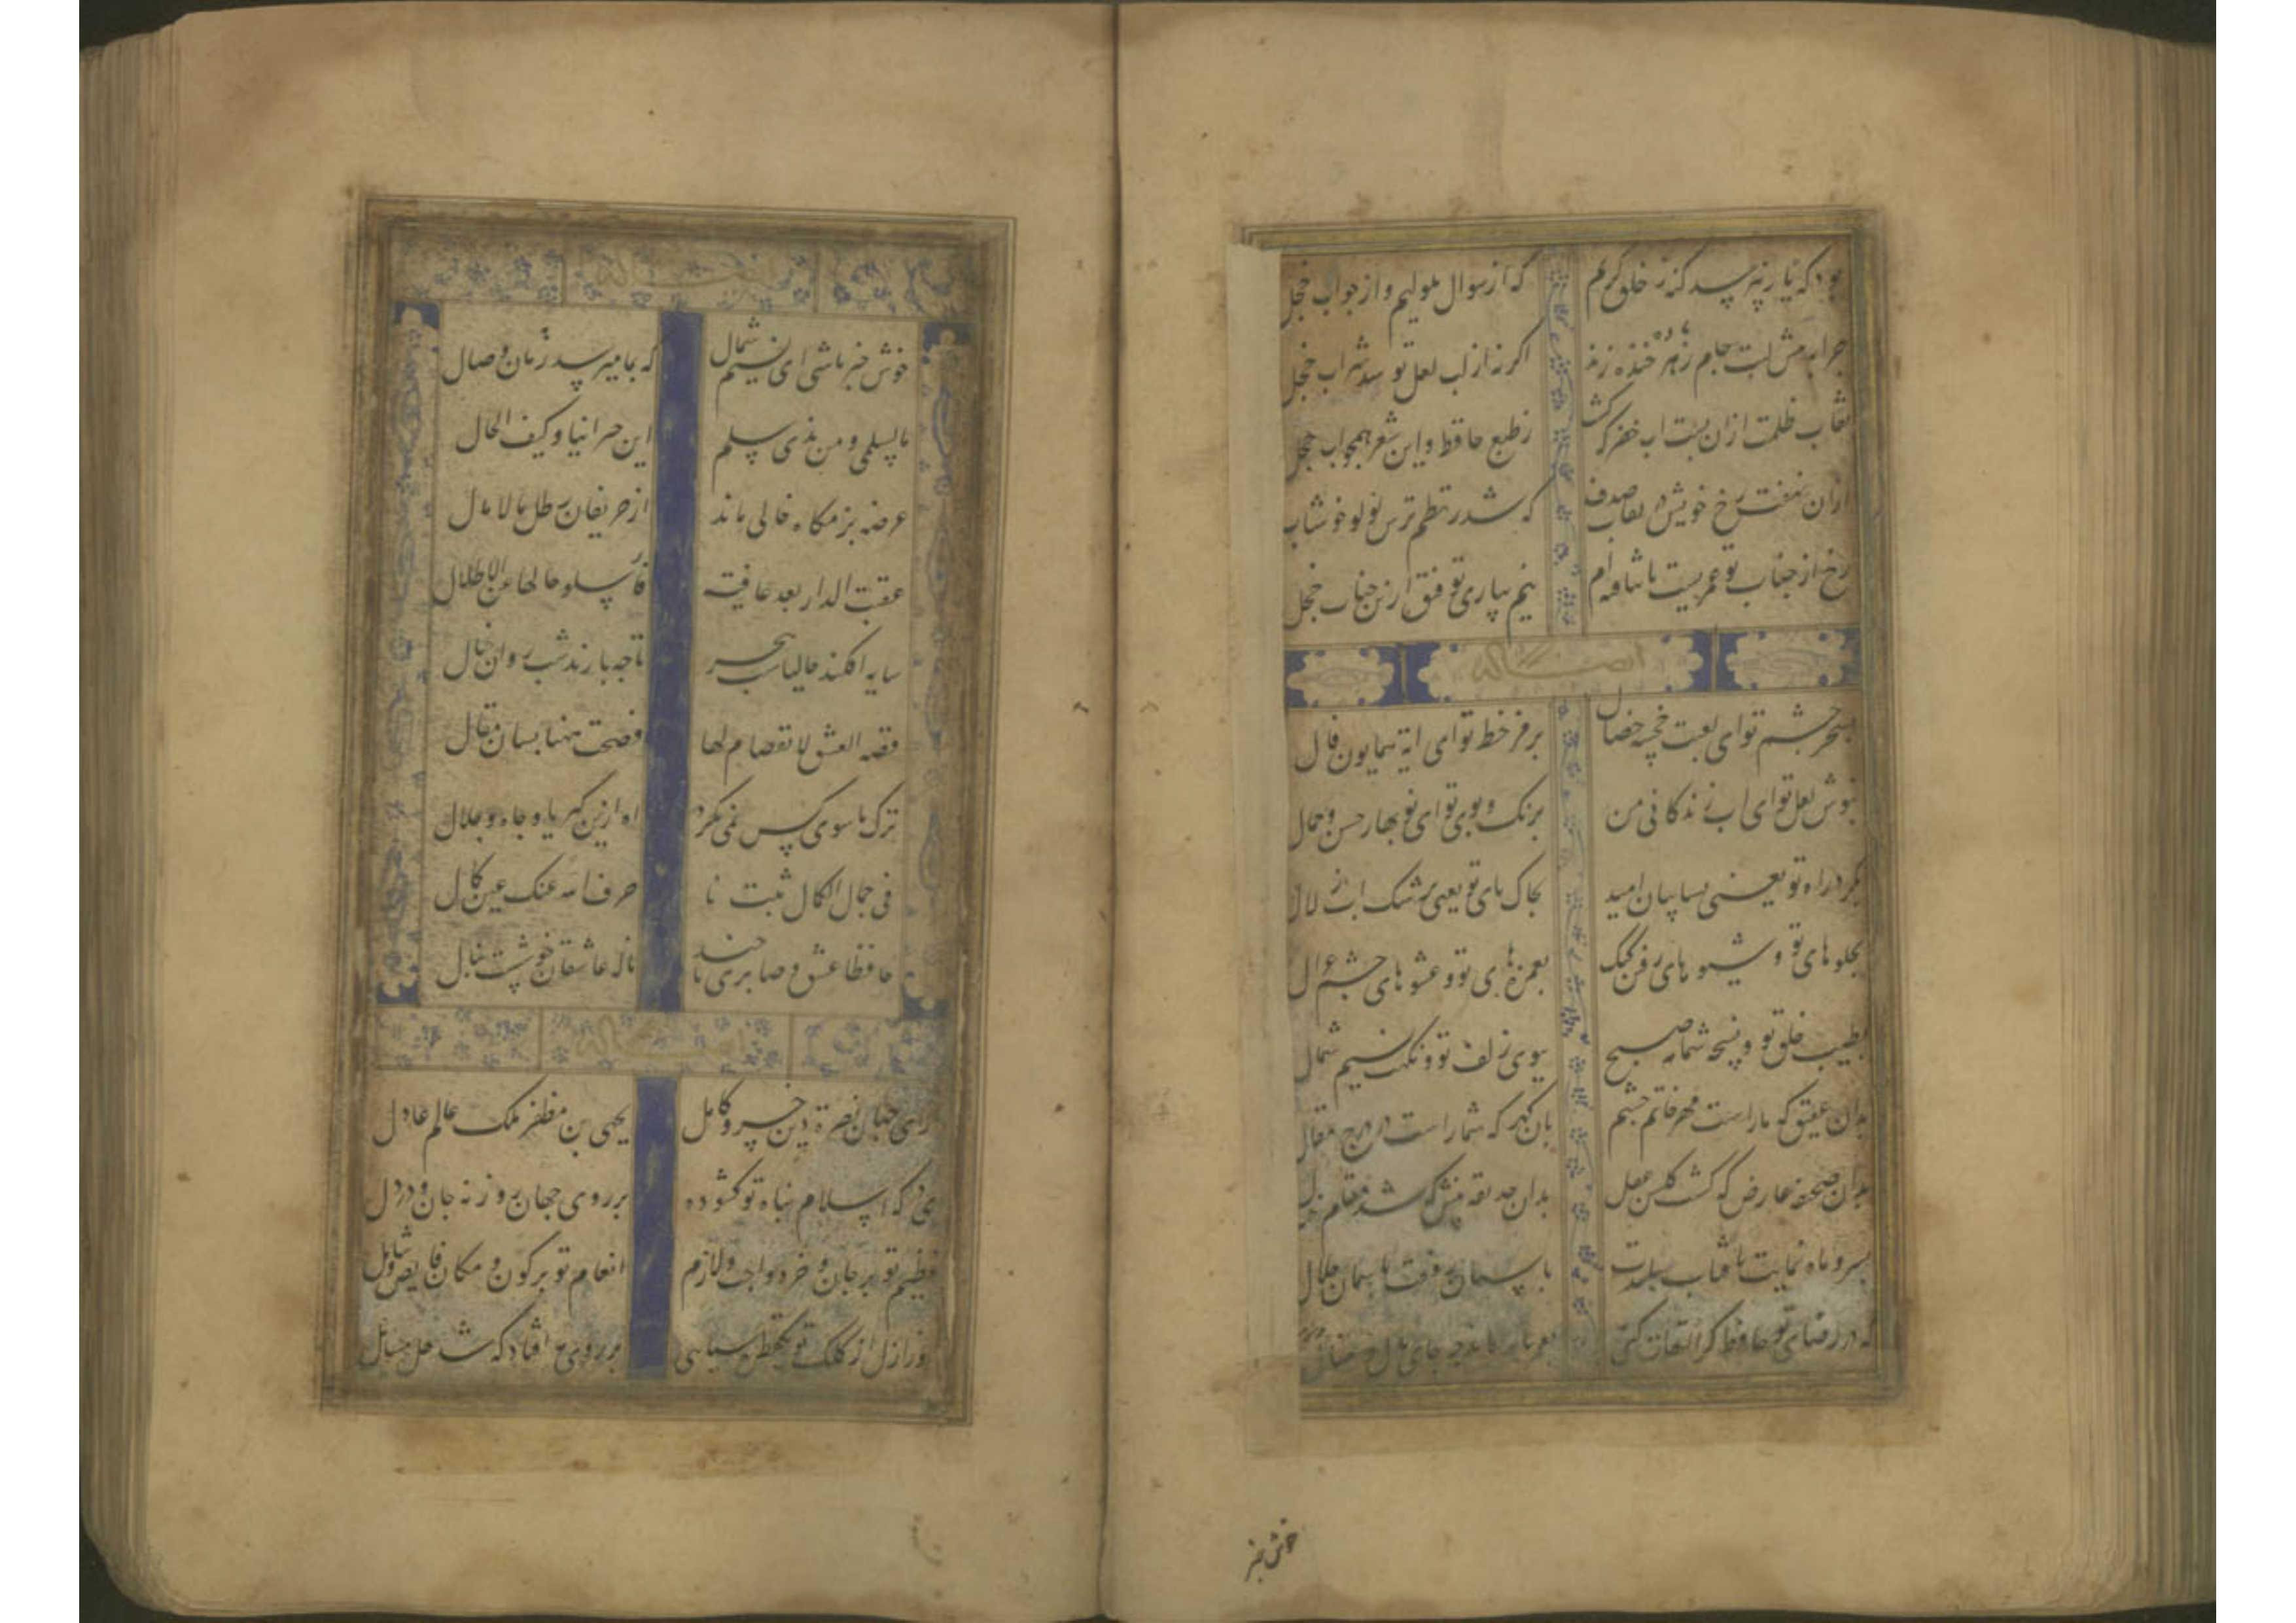 بود که یار نپرسد گنه ز خلق کریم که از سوال ملولیم و از جواب خجل
چرا بدمش لبت جام زهر خنده زند اکر نه از لب لعل تو شد شراب خجل
نقاب ظلمت ازان بست اب خضر که کشت ز طبع حافظ و این شعر همچو اب خجل
ازان نهفت رخ خویش در نقاب صدف که شد ز نظم ترش لولو خوشاب
رخ از جناب تو عمریست تا نتافته‌ام نیم بیاری توفیق ازین جناب خجل
بسحر چشم تو ای لعبت خجسته خصال برمز خط تو ای ایة همایون فال
بنوش لعل تو ای اب زندکانی من برنک و بوی تو ای نو بهار حسن و جمال
بکرد راه تو یعنی بسایبان امید بخاک پای تو یعنی برشک اب زلال
بجلوهای تو و شیوهای رفتن کبک بغمزهای تو و عشوهای چشم غزال
بطیب خلق تو و نفحه شمامه صبح ببوی زلف تو و نکهت نسیم شمال
بدان عقیق که ماراست مهر خاتم چشم بان کهر که شماراست در درج مقال
بدان صحیفه عارض که کشت کلشن عقل بدان حدیقه بینش که شد مقام خیال
بسرو ماه نمایت بافتاب بلندت باسمان رفعت باسمان جلال
که در رضای تو حافظ کر التفات کنی بعمر باز نماند چه جای مال و منال
خوش خبر
خوش خبر باشی ای نسیم شمال که بما میرسد زمان وصال
ما لسلمی و من بذی سلم این جیراننا و کیف الحال
عرصه بزمکاه خالی ماند از حریفان و رطل مالامال
عفت الدار بعد عافیة فاسلوا حالها عن الاطلال
سایه افکند حالیا شب هجر تا چه بازند شب روان خیال
قصة العشق لا انفصام لها فصمت ههنا لسان مقال
ترک ما سوی کس نمی نکرد اه ازین کبریا و جاه و جلال
فی جمال الکمال نلت منا صرف الله عنک عین کمال
حافظا عشق و صابری تا چند ناله عاشقان خوشست بنال
دارای جهان نصرة دین خسرو کامل یحیی بن مظفر ملک عالم عادل
ای درکه اسلام پناه تو کشوده بر روی جهان روزنه جان و در دل
تعظیم تو بر جان و خرد واجب و لازم انعام تو بر کون و مکان فایض و شامل
روز ازل از کلک تو یک قطره سیاهی بر روی مه افتاد که شد حل مسایل